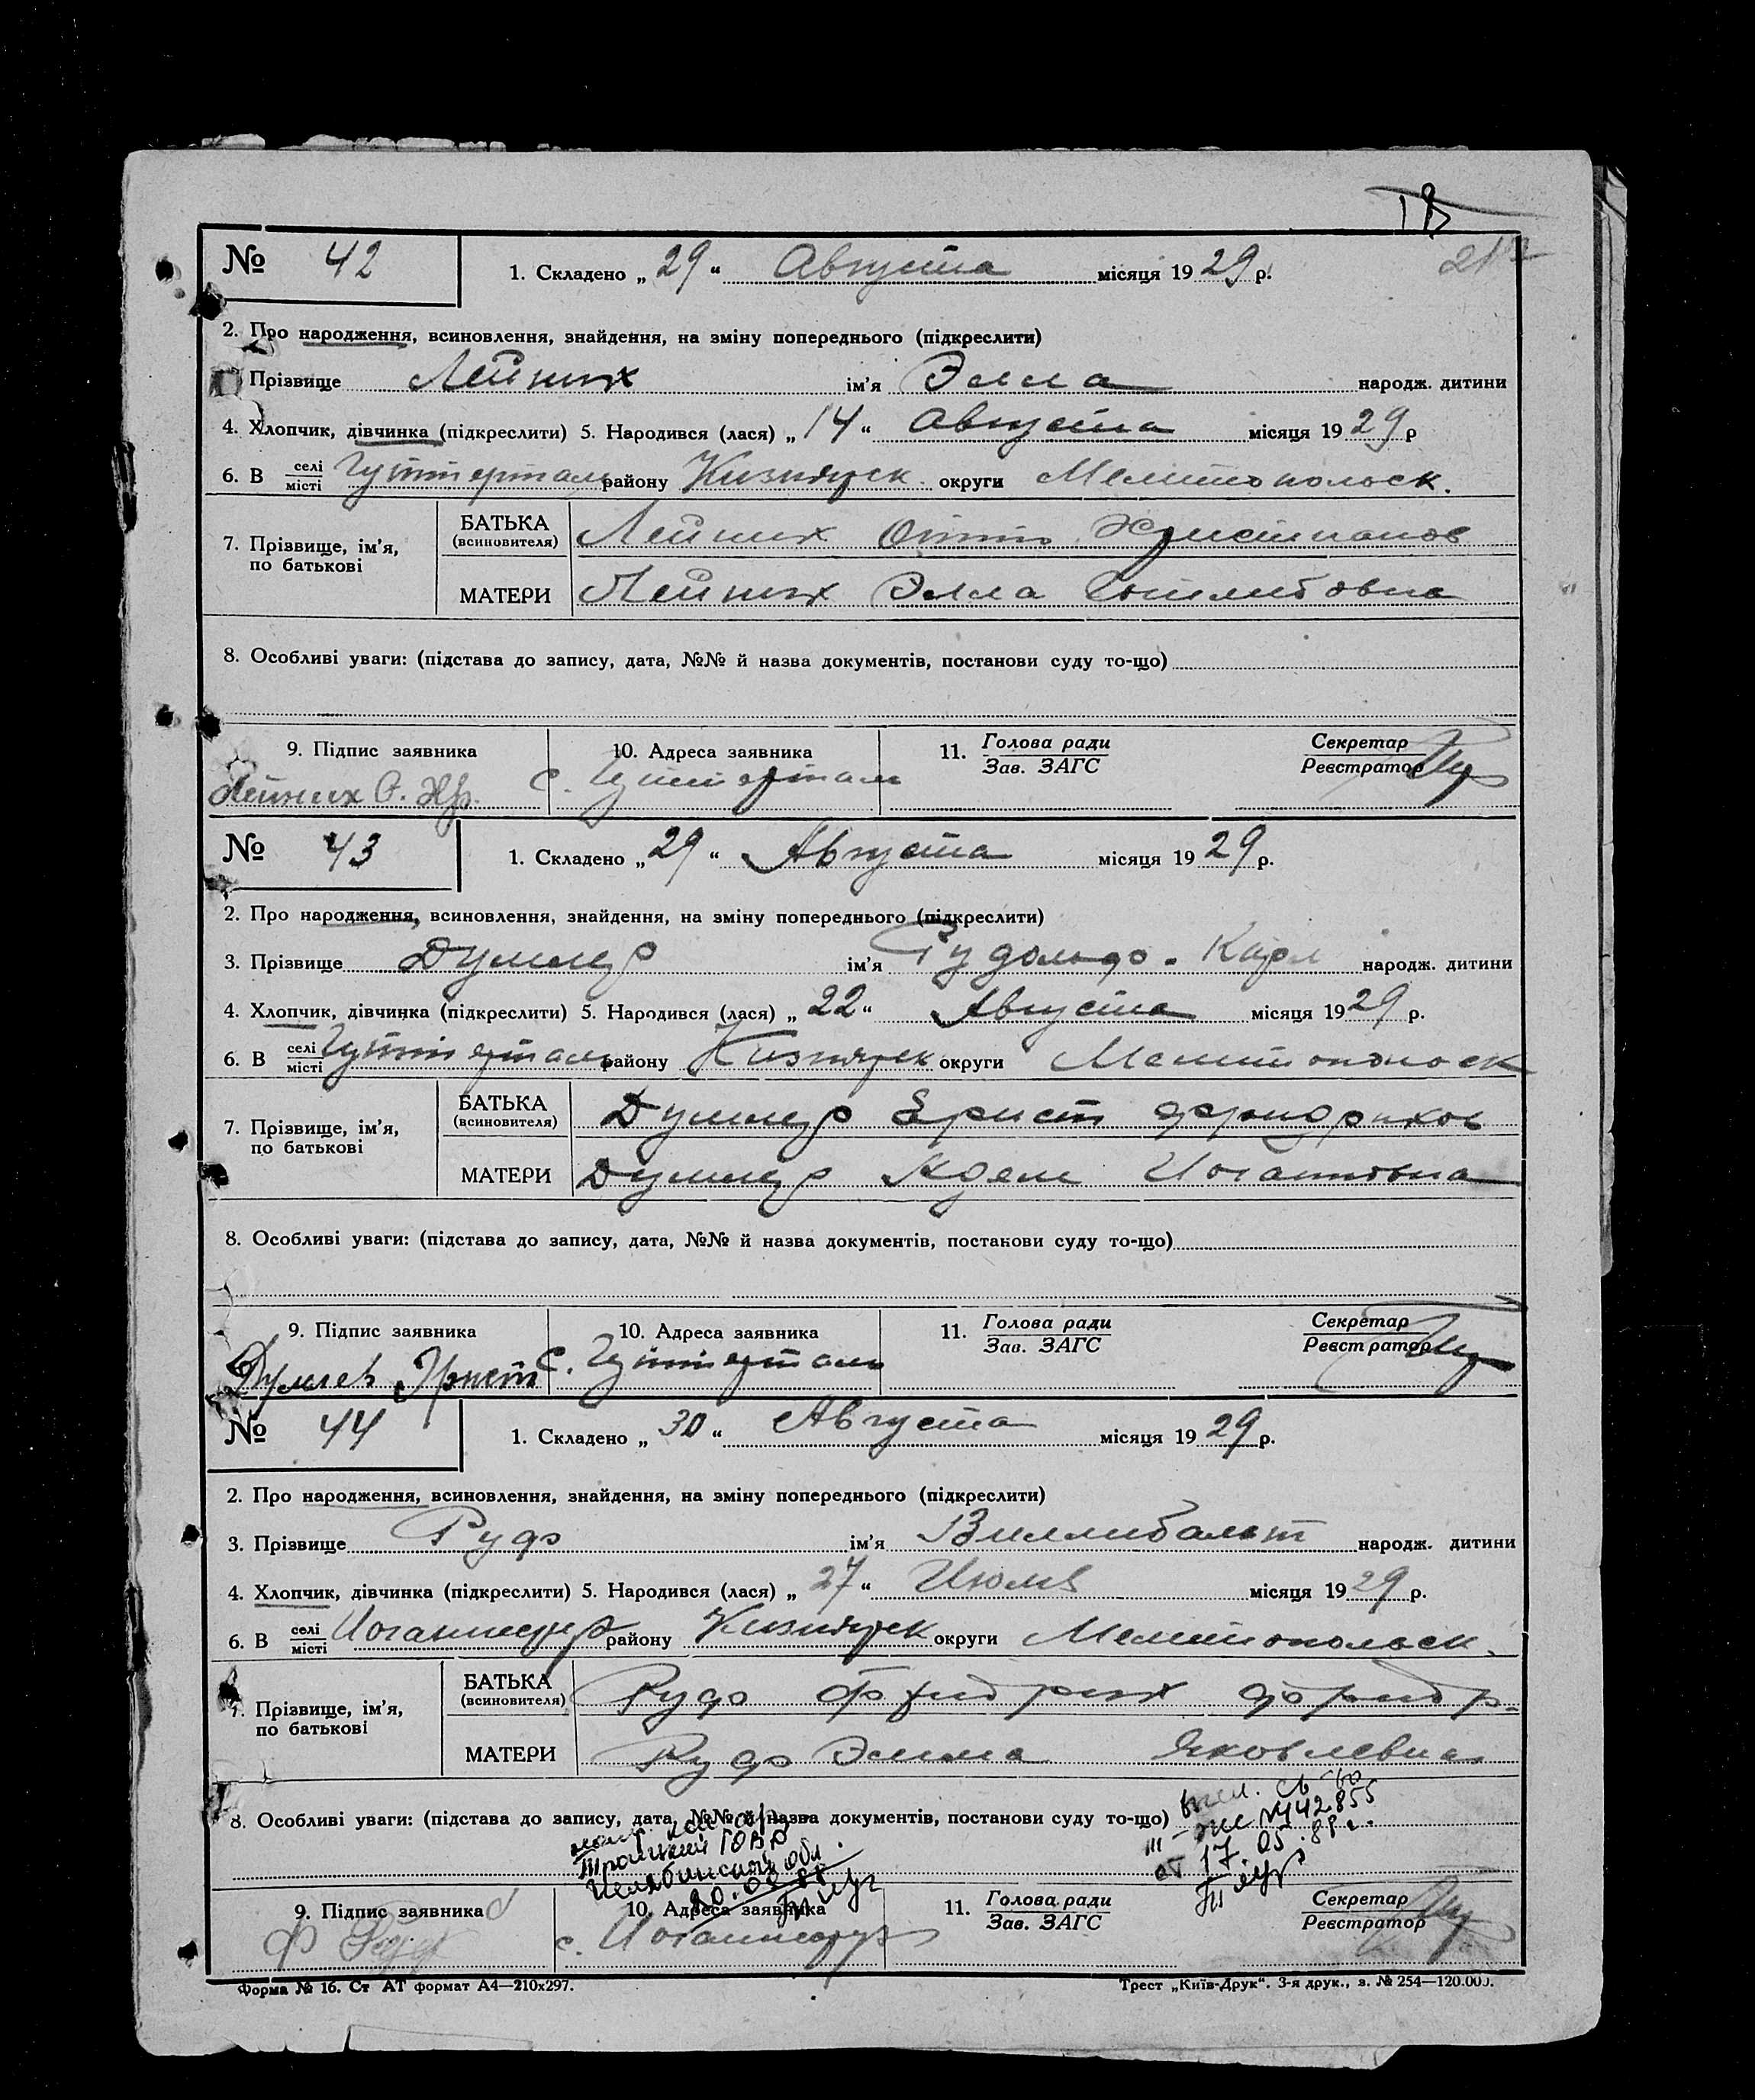 18
№ 42 1. Складено „ 29 “ Августа місяця 19 29 р.
2. Про народження, всиновлення, знайдення, на зміну попереднього (підкреслити)
Прізвище Лейних ім'я Элла народж. дитини
4. Хлопчик, дівчинка (підкреслити) 5. Народився (лася) „ 14 “ Августа місяця 19 29 р
6. В селі місті Гуттерталь району Кизиярск округи Мелитопольск.
7. Прізвище, ім'я, по батькові
БАТЬКА (всиновителя) Лейних Отто Христианов
МАТЕРИ Лейних Элла Готлибовна
8. Особливі уваги: (підстава до запису, дата, №№ й назва документів, постанови суду то-що)
9. Підпис заявника 10. Адреса заявника 11. Голова ради Зав. ЗАГС Секретар Реєстратор
Лейних О. Хр. с. Гуттерталь
№ 43 1. Складено „ 29 “ Августа місяця 19 29 р.
2. Про народження, всиновлення, знайдення, на зміну попереднього (підкреслити)
3. Прізвище Думлер ім'я Рудольф - Карл народж. дитини
4. Хлопчик, дівчинка (підкреслити) 5. Народився (лася) „ 22 “ Августа місяця 19 29 р.
6. В селі місті Гуттерталь району Кизиярск округи Мелитопольск
7. Прізвище, ім'я, по батькові
БАТЬКА (всиновителя) Думлер Ернст Фридрихов
МАТЕРИ Думлер Адель Иогановна
8. Особливі уваги: (підстава до запису, дата, №№ й назва документів, постанови суду то-що)
9. Підпис заявника 10. Адреса заявника 11. Голова ради Зав. ЗАГС Секретар Реєстратор
Думлер Эрнст с. Гуттерталь
№ 44 1. Складено „ 30 “ Августа місяця 19 29 р.
2. Про народження, всиновлення, знайдення, на зміну попереднього (підкреслити)
3. Прізвище Руфф ім'я Виллибальт народж. дитини
4. Хлопчик, дівчинка (підкреслити) 5. Народився (лася) „ 27 “ Июля місяця 19 29 р.
6. В селі місті Иоганнесру району Кизиярск округи Мелитопольск.
7. Прізвище, ім'я, по батькові
БАТЬКА (всиновителя) Руфф Фридрих Фридр.
МАТЕРИ Руфф Эмма Яковлевна
8. Особливі уваги: (підстава до запису, дата, №№ й назва документів, постанови суду то-що)
св-во
III-ЖС № 442855
от 17.05.88 г.
Троицкий ГОВД
Челябинской обл.
9. Підпис заявника 10. Адреса заявника 11. Голова ради Зав. ЗАГС Секретар Реєстратор
Ф с. Иоганнесру
Форма № 16. Ст АТ формат А4—210х297. Трест „Київ-Друк“. 3-я друк., з. № 254—120.000.